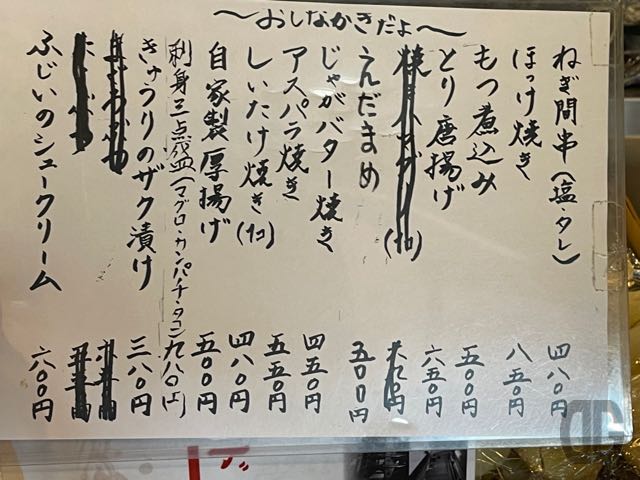 ～おしながきだよ～
ねぎ間串(塩・タレ) 四八〇円
ほっけ焼き 八五〇円
もつ煮込み 五〇〇円
とり唐揚げ 六五〇円
えんだまめ 五〇〇円
じゃがバター焼き 四五〇円
アスパラ焼き 五五〇円
しいたけ焼き(1コ) 四八〇円
自家製厚揚げ 五〇〇円
刺身三点盛(マグロ・カンパチ・タコ) 九八〇円
きゅうりのザク漬け 三八〇円
ふじいのシュークリーム 六〇〇円